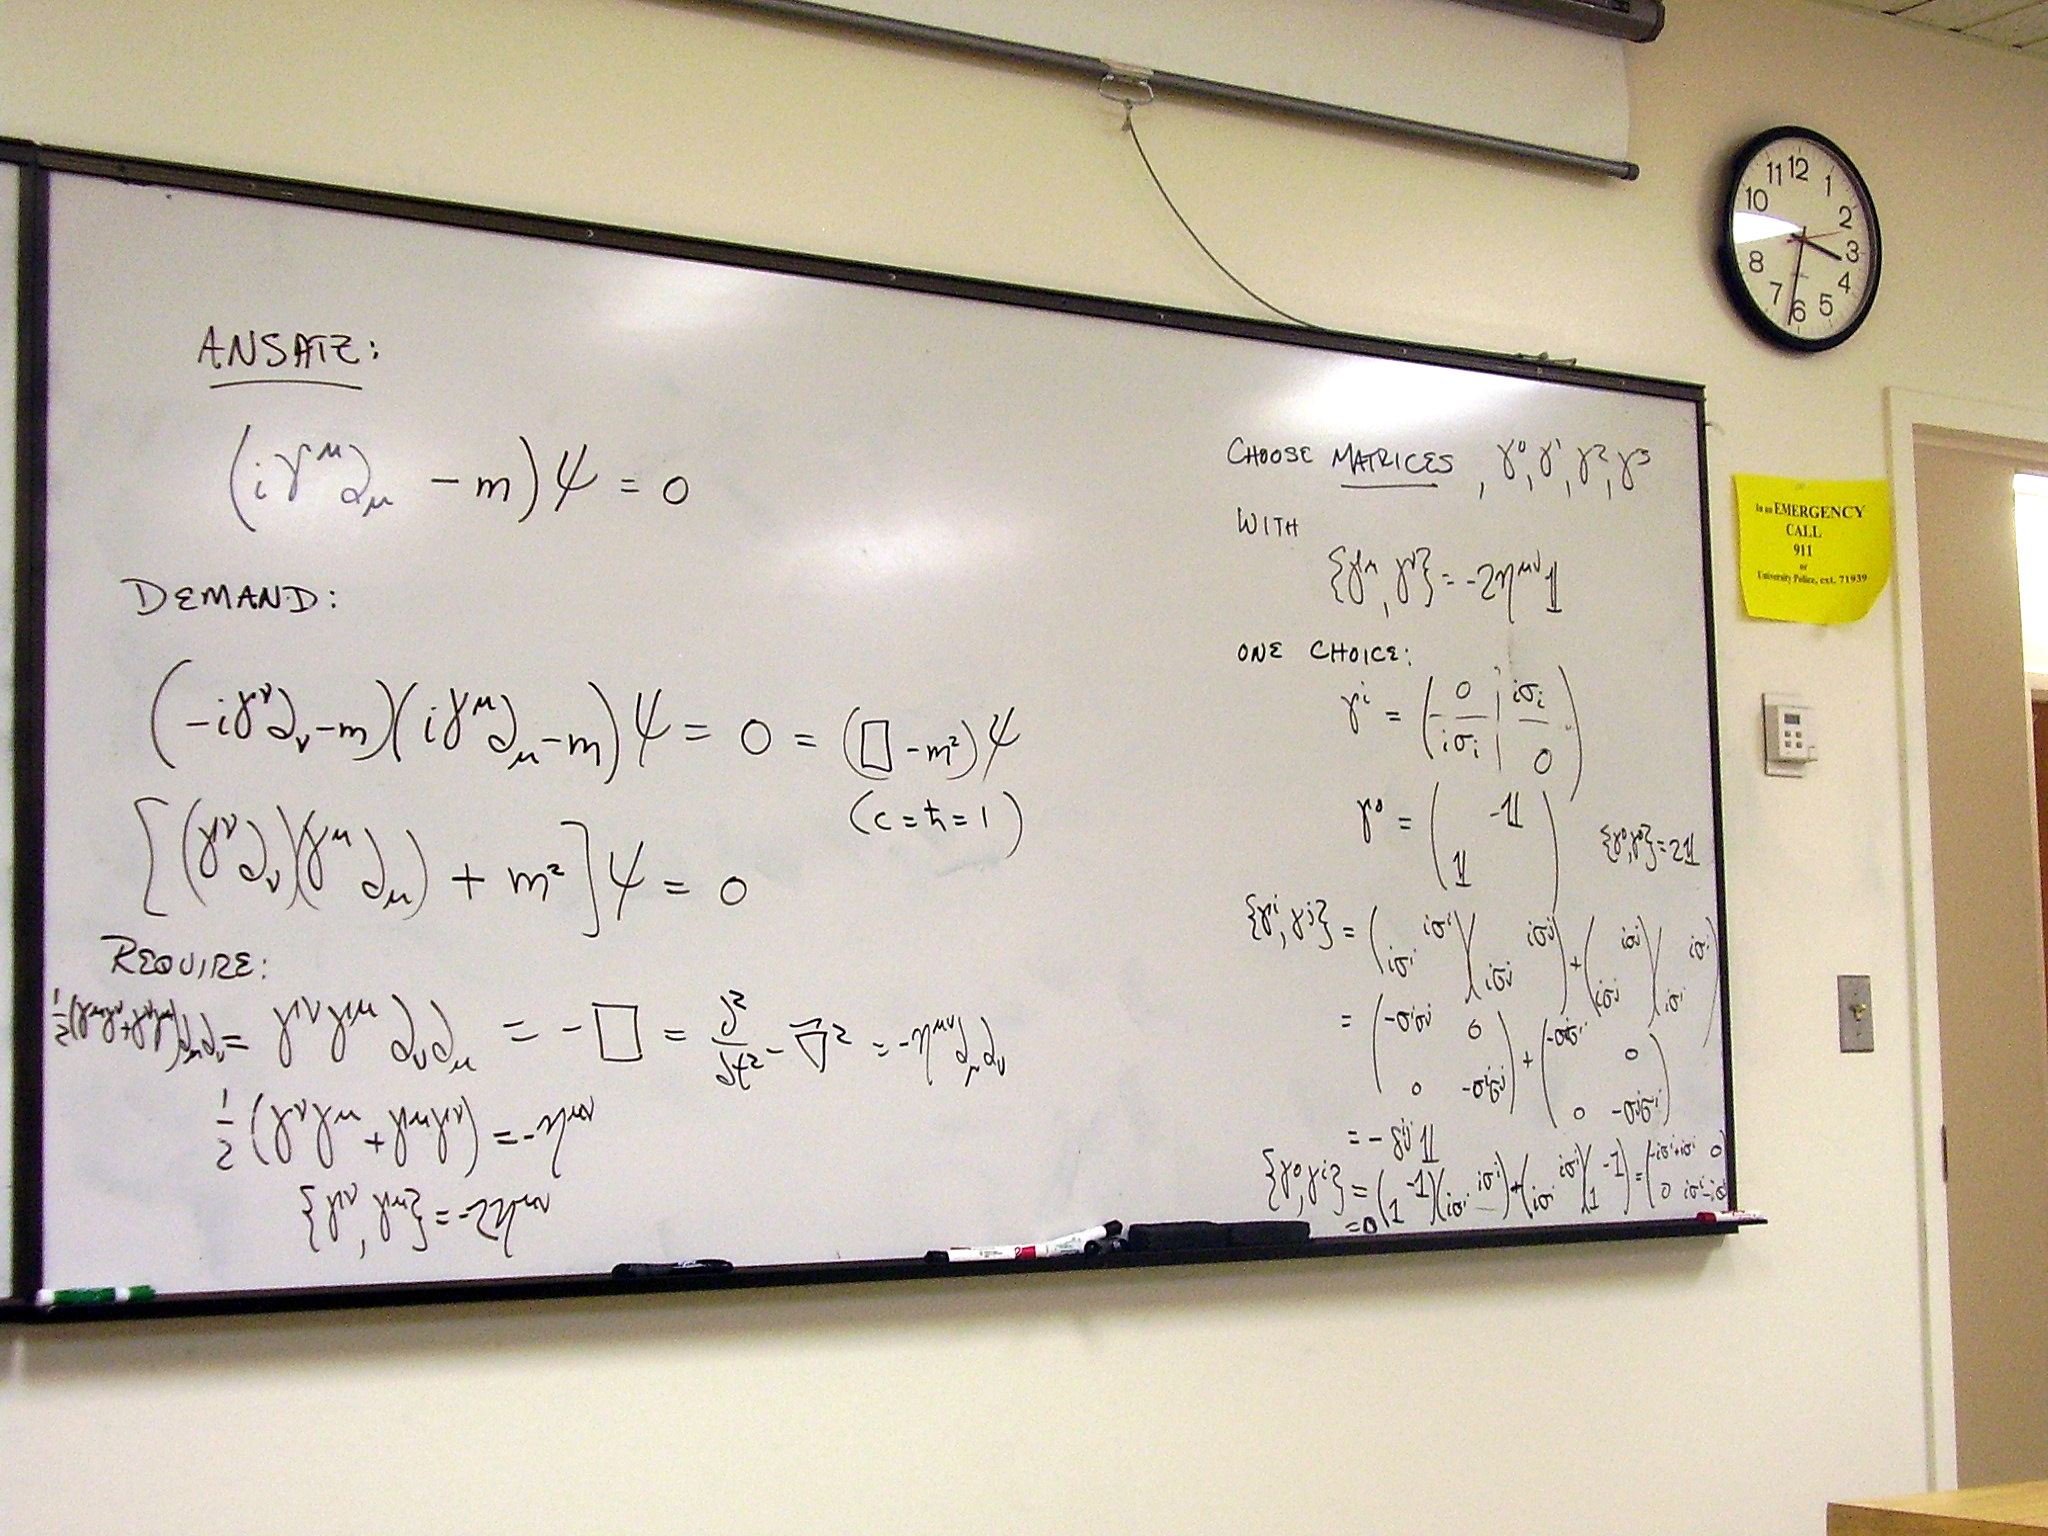 ANSATZ:
(iγ^μ ∂_μ - m)ψ = 0
DEMAND:
(-iγ^ν ∂_ν - m)(iγ^μ ∂_μ - m)ψ = 0 = (□ - m²)ψ
(c = ħ = 1)
[(γ^ν ∂_ν)(γ^μ ∂_μ) + m²]ψ = 0
REQUIRE:
½(γ^μγ^ν + γ^νγ^μ)∂_μ∂_ν = γ^νγ^μ ∂_ν∂_μ = -□ = ∂²/∂t² - ∇⃗² = -η^{μν}∂_μ∂_ν
½(γ^νγ^μ + γ^μγ^ν) = -η^{μν}
{γ^ν, γ^μ} = -2η^{μν}
CHOOSE MATRICES, γ⁰, γ¹, γ², γ³
WITH
{γ^μ, γ^ν} = -2η^{μν}𝟙
ONE CHOICE:
γ^i = ( 0 | iσ_i
iσ_i | 0 )
γ⁰ = ( -𝟙
𝟙 )
{γ⁰,γ⁰} = 2𝟙
{γ^i, γ^j} = ( iσ^i
iσ^i )( iσ^j
iσ^j ) + ( iσ^j
iσ^j )( iσ^i
iσ^i )
= ( -σ^iσ^j 0
0 -σ^iσ^j ) + ( -σ^jσ^i 0
0 -σ^jσ^i )
= -δ^{ij}𝟙
{γ⁰, γ^i} = ( -1
1 )( iσ^i
iσ^i ) + ( iσ^i
iσ^i )( -1
1 ) = ( -iσ^i+iσ^i 0
0 iσ^i-iσ
= 0
11 12 1
10 2
3
8 4
7 6 5
In an EMERGENCY
CALL
911
or
University Police, ext. 71939